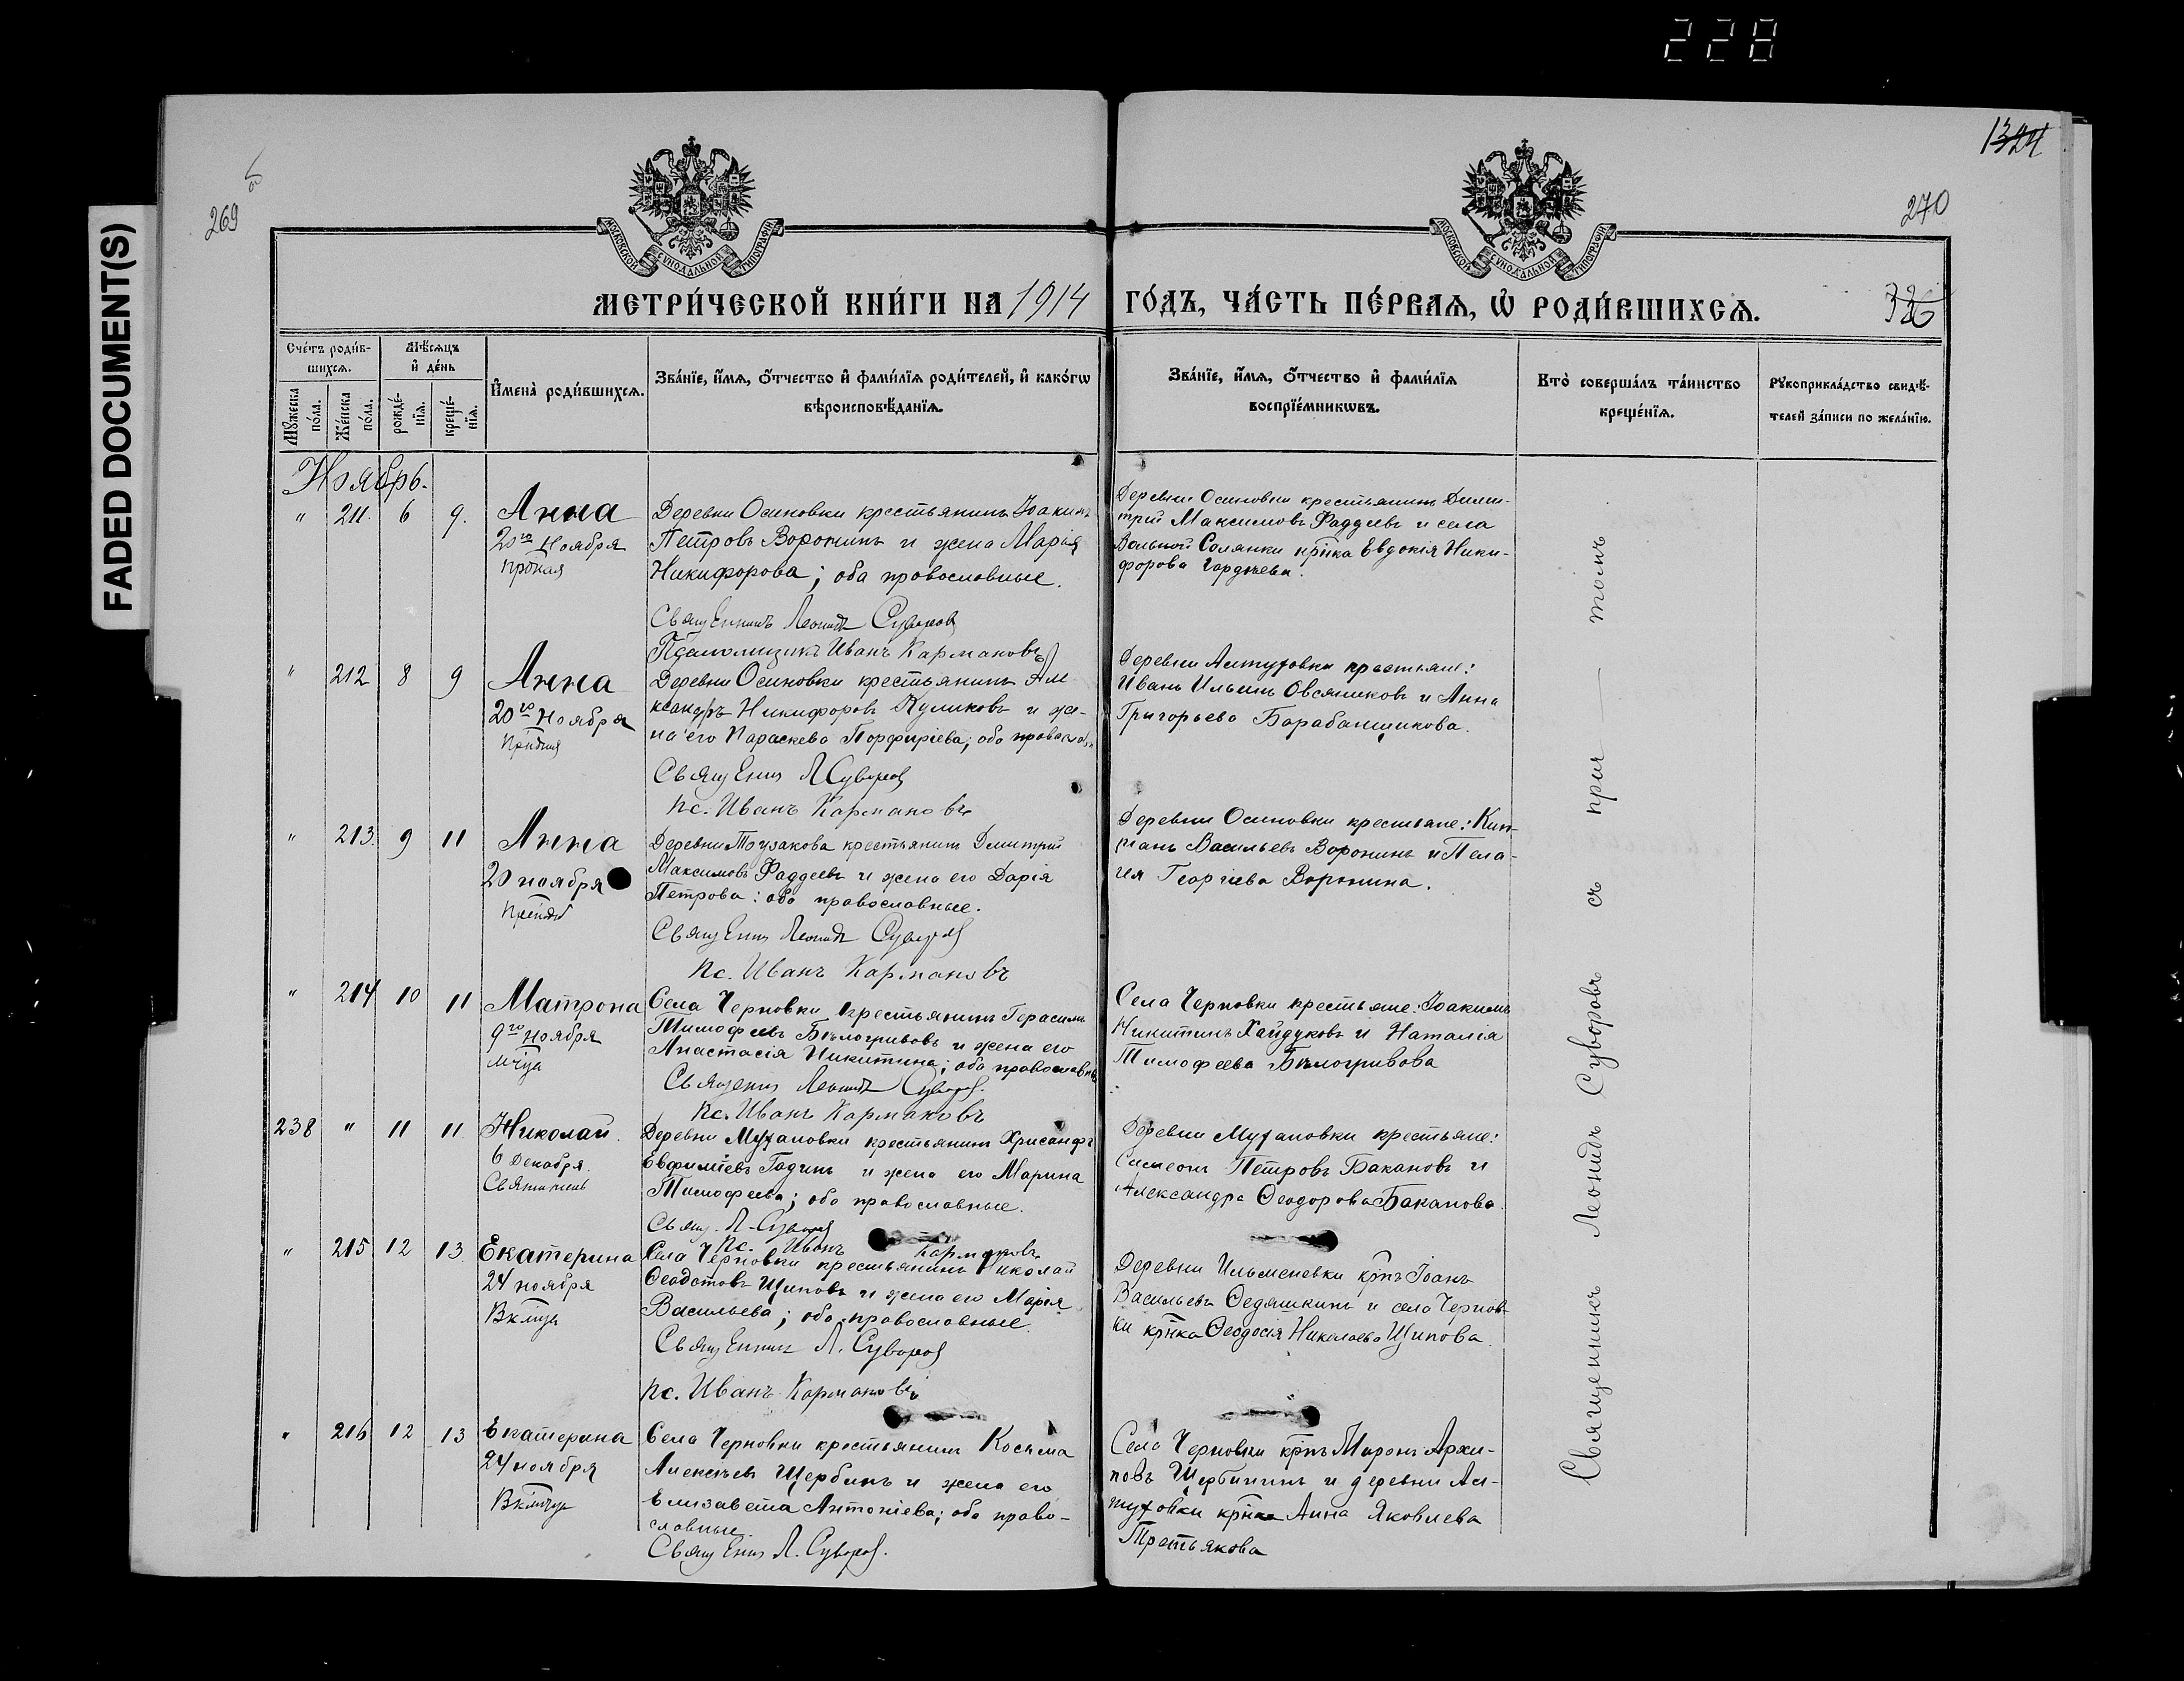 228
FADED DOCUMENT(S)
1324
269
270
МОСКОВСКОЙ СУНОДАЛЬНОЙ ТИПОГРАФІИ
МОСКОВСКОЙ СУНОДАЛЬНОЙ ТИПОГРАФІИ
МЕТРИ́ЧЕСКОЙ КНИ́ГИ НА 1914 ГО́ДЪ, ЧА́СТЬ ПЕ́РВАѦ, Ѡ РОДИ́ВШИХСѦ.
Сче́тъ роди́в-
шихсѧ.
Мѣ́сѧцъ
и҆ де́нь
Мꙋжеска
по́ла.
Же́нска
по́ла.
рожде́-
нїѧ.
креще́-
нїѧ.
И҆мена̀ роди́вшихсѧ.
Зва́нїе, и҆́мѧ, ѻ҆́тчество и҆ фами́лїѧ роди́телей, и҆ како́гѡ
вѣроисповѣ́данїѧ.
Зва́нїе, и҆́мѧ, ѻ҆́тчество и҆ фами́лїѧ
воспрїе́мникѡвъ.
Кто̀ соверша́лъ та́инство
креще́нїѧ.
Рꙋкоприкла́дство свидѣ́-
телей за́писи по жела́нїю.
Ноябрь.
" 211. 6 9. Анна
20го Ноября
Деревни Осиновки крестьянинъ Іоакимъ
Петровъ Воронинъ и жена Марія
Никифорова; оба православные.
Священникъ Леонидъ Суворовъ
Псаломщикъ Иванъ Кармановъ
Деревни Осиновки крестьянинъ Дими-
трій Максимовъ Фаддеевъ и села
Вольной Солянки кр҃нка Евдокія Ники-
форова Гордѣева.
" 212 8 9 Анна
20го Ноября
Деревни Осиновки крестьянинъ Але
ксандръ Никифоровъ Куликовъ и же-
на его Параскева Порфиріева; оба православн
Священ Л Суворовъ
пс. Иванъ Кармановъ
Деревни Алтуховки крестьяне:
Иванъ Ильинъ Овсяниковъ и Анна
Григорьева Барабанщикова.
" 213. 9 11 Анна
20 ноября
Деревни Тоузакова крестьянинъ Дмитрій
Максимовъ Фаддеевъ и жена его Дарія
Петрова: оба православные.
Священ Леонидъ Суворовъ
пс. Иванъ Кармановъ
Деревни Осиновки крестьяне: Кип-
ріанъ Васильевъ Воронинъ и Пела-
гея Георгіева Воронина.
" 214 10 11 Матрона
9го ноября
мч҃ца
Села Черновки крестьянинъ Герасимъ
Тимофеевъ Бѣлогривовъ и жена его
Анастасія Никитина; оба православн
Священ Леонидъ Суворовъ.
пс. Иванъ Кармановъ
Села Черновки крестьяне: Іоакимъ
Никитинъ Хайдуковъ и Наталія
Тимофеева Бѣлогривова
238 " 11 11 Николай.
6 Декабря.
Деревни Мухановки крестьянинъ Хрисанфъ
Евфиміевъ Гадчинъ и жена его Марина
Тимофеева; оба православные.
Свящ. Л. Суворовъ
пс. Иванъ Кармановъ
Деревни Мухановки крестьяне:
Симеонъ Петровъ Бакановъ и
Александра Ѳеодорова Баканова
" 215 12 13. Екатерина
24 ноября
Вкмцы
Села Черновки крестьянинъ Николай
Ѳеодотовъ Щиповъ и жена его Марія
Васильева; оба православные
Священникъ Л. Суворовъ
пс. Иванъ Кармановъ
Деревни Ильменевки кр҃нъ Іоанъ
Васильевъ Ѳедяшкинъ и села Чернов-
ки кр҃нка Ѳеодосія Николаева Щипова.
" 216 12 13 Екатерина
24 ноября
Вкмцы
Села Черновки крестьянинъ Косьма
Алексѣевъ Щербинъ и жена его
Елизавета Антоніева; оба право-
славные.
Священ Л. Суворовъ.
Села Черновки кр҃нъ Миронъ Архи-
повъ Щербининъ и деревни Ал-
туховки кр҃нка Анна Яковлева
Третьякова
Священникъ Леонидъ Суворовъ съ прич — томъ